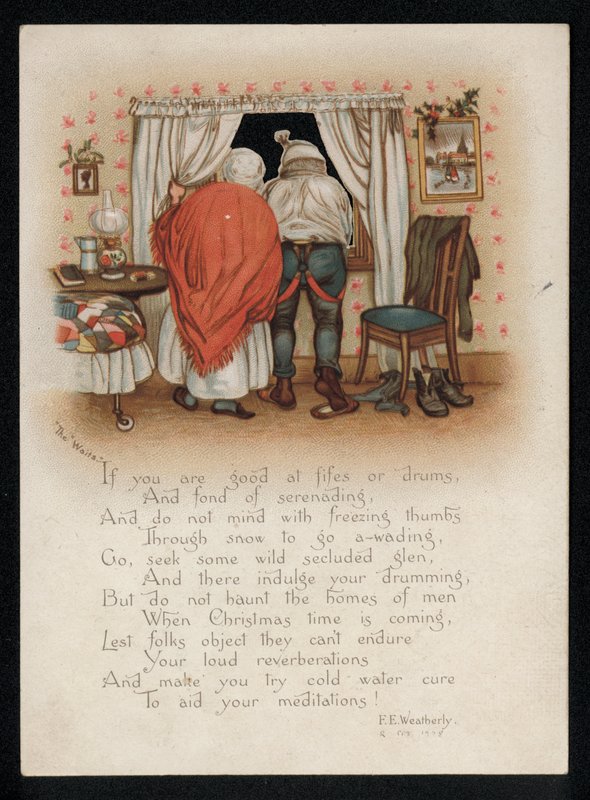 "The "Waits."
If you are good at fifes or drums,
And fond of serenading,
And do not mind with freezing thumbs
Through snow to go a-wading,
Go, seek some wild secluded glen,
And there indulge your drumming,
But do not haunt the homes of men
When Christmas time is coming,
Lest folks object they can't endure
Your loud reverberations
And make you try cold water cure
To aid your meditations!
F.E.Weatherly.